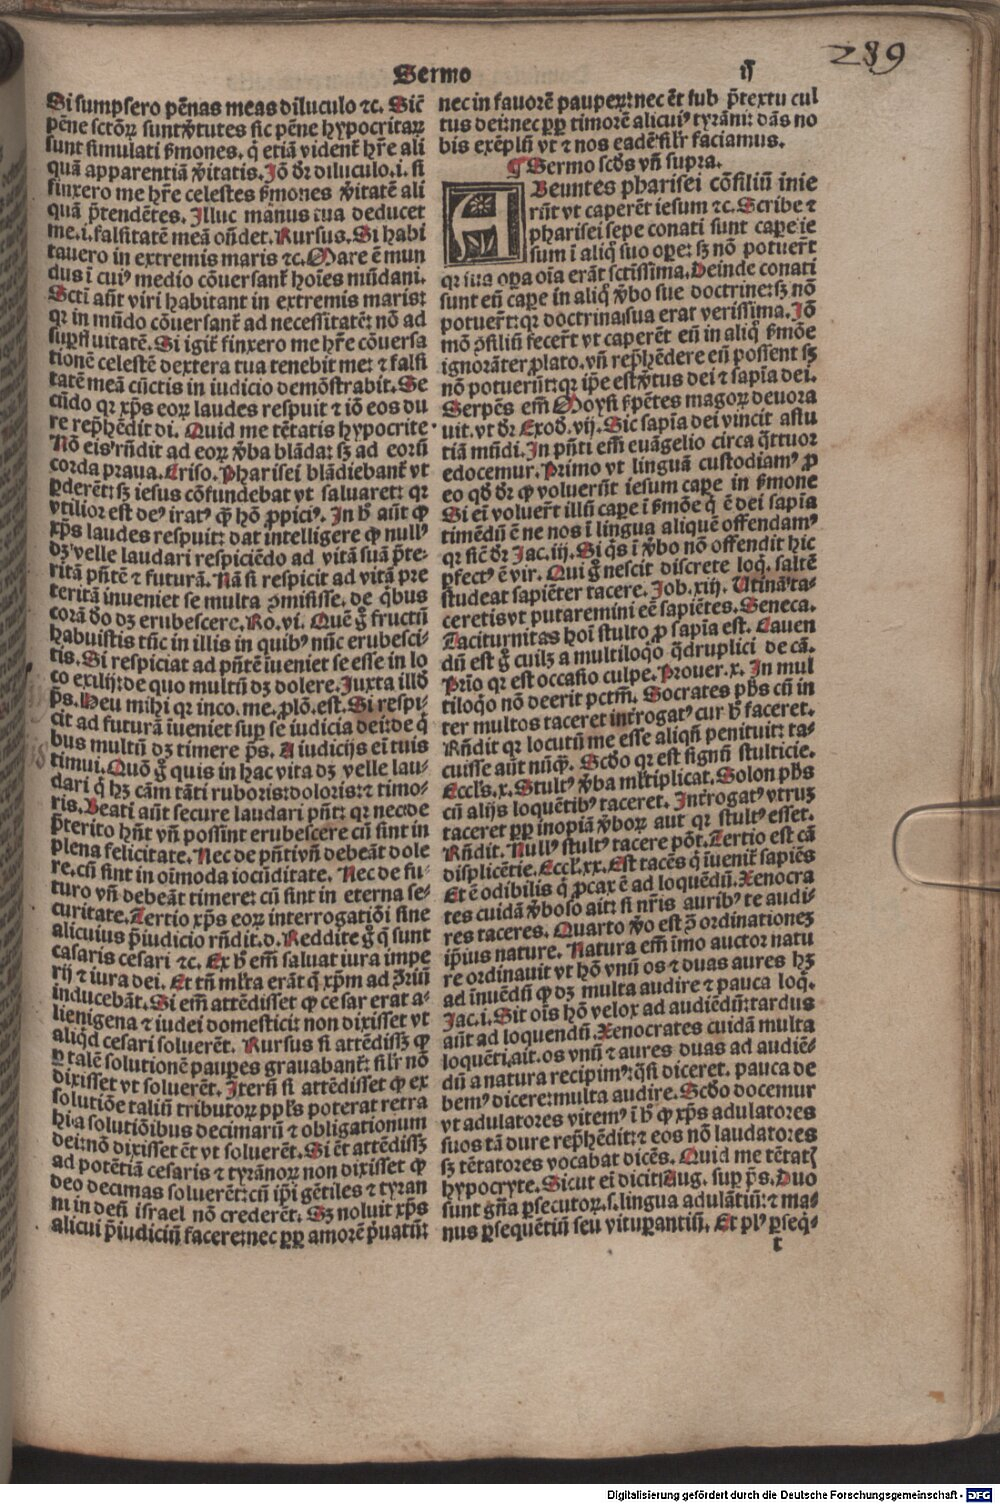 Sermo ij
289
Si sumpsero pēnas meas diluculo ⁊c. Sic̄
pēne sctōꝝ sunt ꝟtutes sic pēne hypocritaꝝ
sunt simulati ẜmones. q̇ etiā vident᷑ hr̄e ali
quā apparentiā ꝟitatis. Iō dr̄ diluculo .i. si
finxero me hr̄e celestes ẜmones ꝟitatē ali
quā p̄tendētes. Illuc manus tua deducet
me .i. falsitatē meā on̄det. Rursus. Si habi
tauero in extremis maris ⁊c. Mare ē mun
dus ī cuiꝰ medio cōuersant᷑ hoīes mūdani.
Scti aūt viri habitant in extremis maris:
qꝛ in mūdo cōuersant᷑ ad necessitatē: nō ad
suꝑfluitatē. Si igit᷑ finxero me hr̄e cōuersa
tionē celestē dextera tua tenebit me: ⁊ falsi
tatē meā cūctis in iudicio demōstrabit. Se
cūdo qꝛ xp̄s eoꝝ laudes respuit ⁊ iō eos du
re rep̄hēdit di. Quid me tētatis hypocrite
Nō eis rn̄dit ad eoꝝ ꝟba blāda: sꝫ ad eorū
corda praua. Criso. Pharisei blādiebant᷑ vt
ꝑderēt: sꝫ iesus cōfundebat vt saluaret: qꝛ
vtilior est deꝰ iratꝰ ꝙ̄ hō ꝓpiciꝰ. In h̄ aūt ꝙ
xp̄s laudes respuit: dat intelligere ꝙ nullꝰ
dꝫ velle laudari respiciēdo ad vitā suā p̄te-
ritā pn̄tē ⁊ futurā. Nā si respicit ad vitā pre
teritā inueniet se multa ꝯmisisse. de q̇bus
corā deo dꝫ erubescere. Ro. vi. Quē g̊ fructū
habuistis tūc in illis in quibꝰ nūc erubesci-
tis. Si respiciat ad pn̄tē īueniet se esse in lo
co exilij: de quo multū dꝫ dolere. Iuxta illd̓
p̄s. Heu mihi qꝛ inco. me. prolō. est. Si respi-
cit ad futurā īueniet suꝑ se iudicia dei: de q̇
bus multū dꝫ timere p̄s. A iudicijs eī tuis
timui. Quō g̊ quis in hac vita dꝫ velle lau-
dari q̇ hꝫ cām tāti ruboris: doloris: ⁊ timo-
ris. Beati aūt secure laudari pn̄t: qꝛ nec de
p̄terito hn̄t vn̄ possint erubescere cū sint in
plena felicitate. Nec de pn̄ti vn̄ debeāt dole
re. cū sint in oīmoda iocūditate. Nec de fu-
turo vn̄ debeāt timere: cū sint in eterna se-
curitate. Tertio xp̄s eoꝝ interrogatiōi sine
alicuius p̄iudicio rn̄dit .d. Reddite g̊ q̄ sunt
cesaris cesari ⁊c. Ex h̄ em̄ saluat iura impe
rij ⁊ iura dei. Et tn̄ ml̓ta erāt q̄ xp̄m ad ꝯ̄riū
inducebāt. Si em̄ attēdisset ꝙ cesar erat a-
lienigena ⁊ iudei domestici: non dixisset vt
aliqd̓ cesari soluerēt. Rursus si attēdissꝫ ꝙ
ꝑ talē solutionē pauꝑes grauabant᷑: sil̓r nō
dixisset vt soluerēt. Iterū si attēdisset ꝙ ex
solutiōe taliū tributoꝝ ppl̓s poterat retra
hi a solutiōibus decimarū ⁊ obligationum
dei: nō dixisset ēt vt soluerēt. Si ēt attēdissꝫ
ad potētiā cesaris ⁊ tyrānoꝝ non dixisset ꝙ
deo decimas soluerēt: cū ip̄i gētiles ⁊ tyran
ni in deū israel nō crederēt. Sꝫ noluit xp̄s
alicui p̄iudiciū facere: nec ꝓꝑ amorē p̄uatū:
nec in fauorē pauperꝝ: nec ēt sub p̄textu cul
tus dei: nec ꝓꝑ timorē alicuiꝰ tyrāni: dās no
bis exēplū vt ⁊ nos eadē sil̓r faciamus.
¶ Sermo scd̓s vn̄ supra.
ABeuntes pharisei cōsiliū inie
rūt vt caperēt iesum ⁊c. Scribe ⁊
pharisei sepe conati sunt capere ie
sum ī aliq̊ suo oꝑe: sꝫ nō potuer̄t
qꝛ sua oꝑa oīa erāt sctīssima. Deinde conati
sunt eū capere in aliq̊ ꝟbo sue doctrine: sꝫ nō
potuer̄t: qꝛ doctrina sua erat verissima. Iō
mō ꝯsiliū fecer̄t vt caperēt eū in aliq̊ ẜmōe
ignorāter ꝓlato. vn̄ rep̄hēdere eū possent sꝫ
nō potuerūt: qꝛ ip̄e est ꝟtus dei ⁊ sapīa dei.
Serpēs em̄ Moysi ẜpētes magoꝝ deuora
uit. vt dr̄ Exod. vij. Sic sapīa dei vincit astu
tiā mūdi. In pn̄ti em̄ euāgelio circa q̄ttuor
edocemur. Primo vt linguā custodiamꝰ ꝓ
eo qd̓ dr̄ ꝙ voluerūt iesum capere in ẜmone
Si eī voluer̄t illū capere ī ẜmōe q̇ ē dei sapīa
timēdū ē ne nos ī lingua aliquē offendamꝰ
qꝛ sic̄ dr̄ Jac. iij. Si q̇s ī ꝟbo nō offendit hic
ꝑfectꝰ ē vir. Qui g̊ nescit discrete loq̇. saltē
studeat sapiēter tacere. Job. xiij. Utinā ta-
ceretis vt putaremini eē sapiētes. Seneca.
Taciturnitas hoī stulto ꝓ sapīa est. Cauen
dū est g̊ cuilꝫ a multiloq̊o q̈druplici de cā.
Prīo qꝛ est occasio culpe. Prouer. x. In mul
tiloq̊o nō deerit pctm̄. Socrates ph̓s cū in
ter multos taceret int̓rogatꝰ cur h̄ faceret.
Rn̄dit qꝛ locutū me esse aliqn̄ penituit: ta-
cuisse aūt nūq̄. Scd̓o qꝛ est signū stulticie.
Eccl̓s. x. Stultꝰ ꝟba ml̓tiplicat. Solon ph̓s
cū alijs loquētibꝰ taceret. Int̓rogatꝰ vtruꝫ
taceret ꝓꝑ inopiā ꝟboꝝ aut qꝛ stultꝰ esset.
Rn̄dit. Nullꝰ stultꝰ tacere pōt. Tertio est cā
displicētie. Eccl̓. xx. Est tacēs q̇ īuenit᷑ sapiēs
Et ē odibilis q̇ ꝓcax ē ad loquēdū. Xenocra
tes cuidā ꝟboso ait: si nr̄is auribꝰ te audi-
res taceres. Quarto ꝟo est ꝯ̄ ordinationeꝫ
ip̄ius nature. Natura em̄ imo auctor natu
re ordinauit vt hō vnū os ⁊ duas aures hꝫ
ad īnuēdū ꝙ dꝫ multa audire ⁊ pauca loq̇.
Jac. i. Sit oīs hō velox ad audiēdū: tardus
aūt ad loquendū. Xenocrates cuidā multa
loquēti. ait. os vnū ⁊ aures duas ad audiē-
dū a natura recipimꝰ: q̈si diceret. pauca de
bemꝰ dicere: multa audire. Scd̓o docemur
vt adulatores vitemꝰ ī h̄ ꝙ xp̄s adulatores
suos tā dure rep̄hēdit: ⁊ eos nō laudatores
sꝫ tētatores vocabat dicēs. Quid me tētatꝭ
hypocryte. Sicut ei dicit Aug. suꝑ p̄s. Duo
sunt gn̄a ꝑsecutoꝝ .s. lingua adulātiū: ⁊ ma-
nus ꝑsequētiū seu vituꝑantiū. Et plꝰ ꝑseq̇-
t
Digitalisierung gefördert durch die Deutsche Forschungsgemeinschaft - DFG